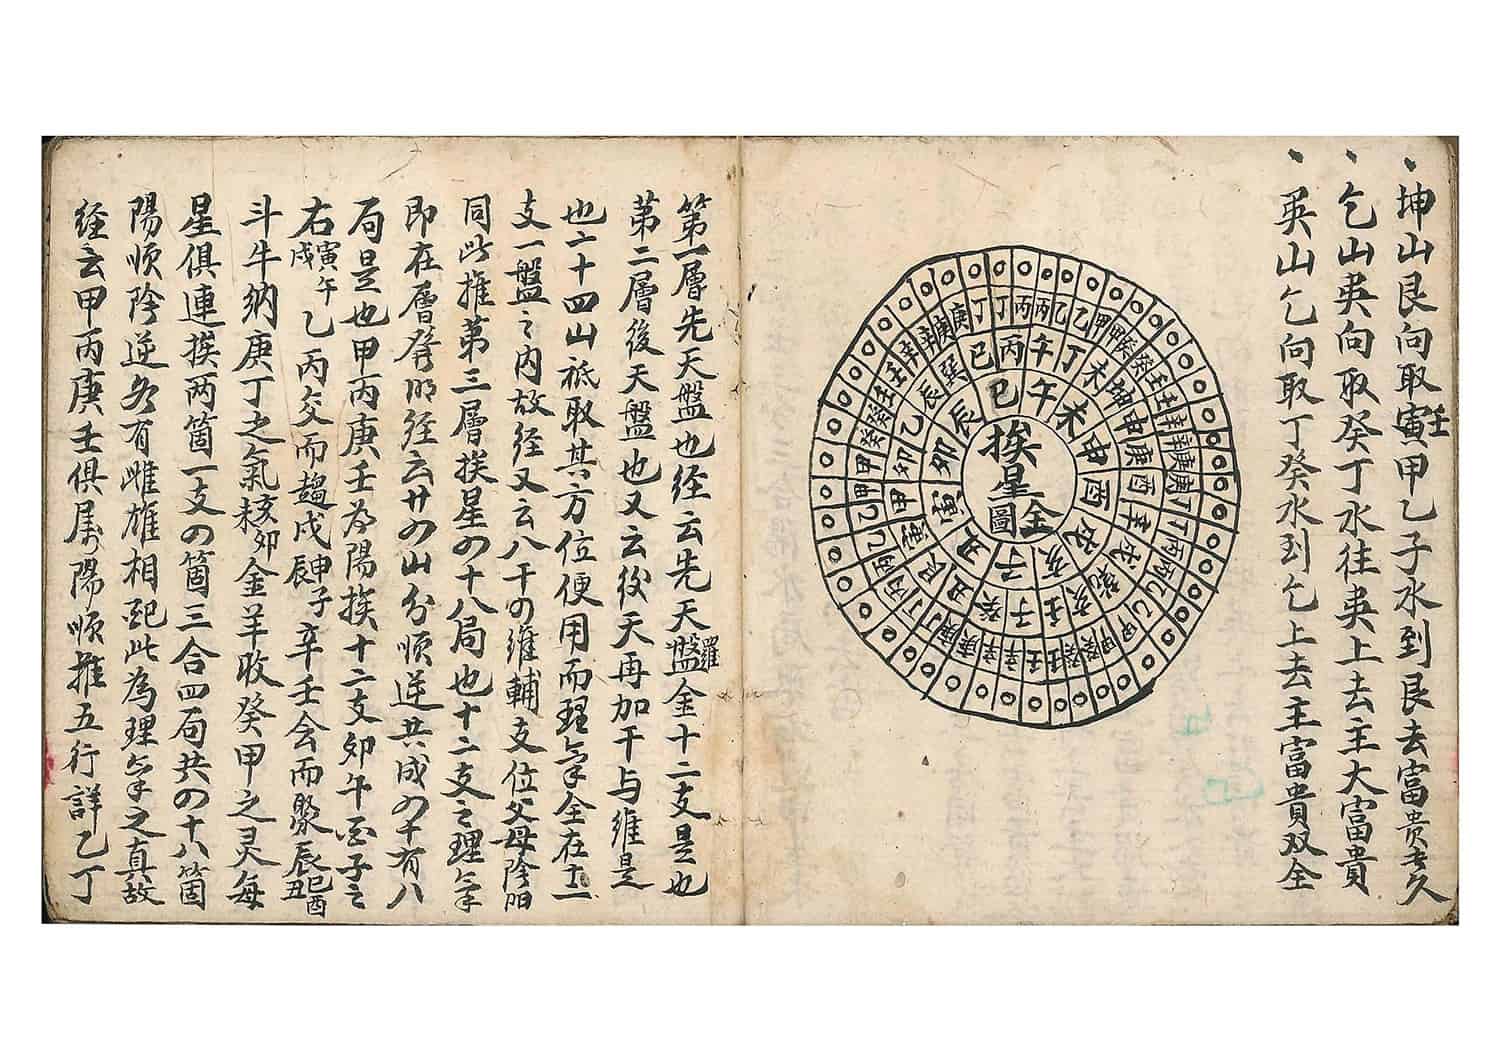 坤山艮向取寅甲乙子水到艮去富贵耊久
壬
乞山英向取癸丁水往英上去主大富貴
英山乞向取丁癸水到乞上去主富貴双全
挨星
全圖
巳午未申酉戌亥子丑寅卯辰
丙午丁未坤申庚酉辛戌乾亥壬子癸丑艮寅甲卯乙辰巽巳
第一層先天盤也经云先天盤金十二支是也
羅
第二層後天盤也又云後天再加干与維是
也二十四山祗取其方位便用而理氣全在十二
支一盤之内故经又云八干の維輔支位父母陰阳
同此推第三層挨星の十八局也十二支之理氣
即在層發明经云廿の山分順逆共成の十有八
局是也甲丙庚壬為陽挨十二支卯午酉子之
右寅午戌乙丙交而趨戍辰申子辛壬会而聚辰巳酉丑
斗牛納庚丁之氣亥卯未金羊收癸甲之灵每
星俱連挨两箇一支の箇三合四局共の十八箇
陽順陰逆各有雌雄相配此為理氣之真故
经云甲丙庚壬俱属陽順推五行詳乙丁